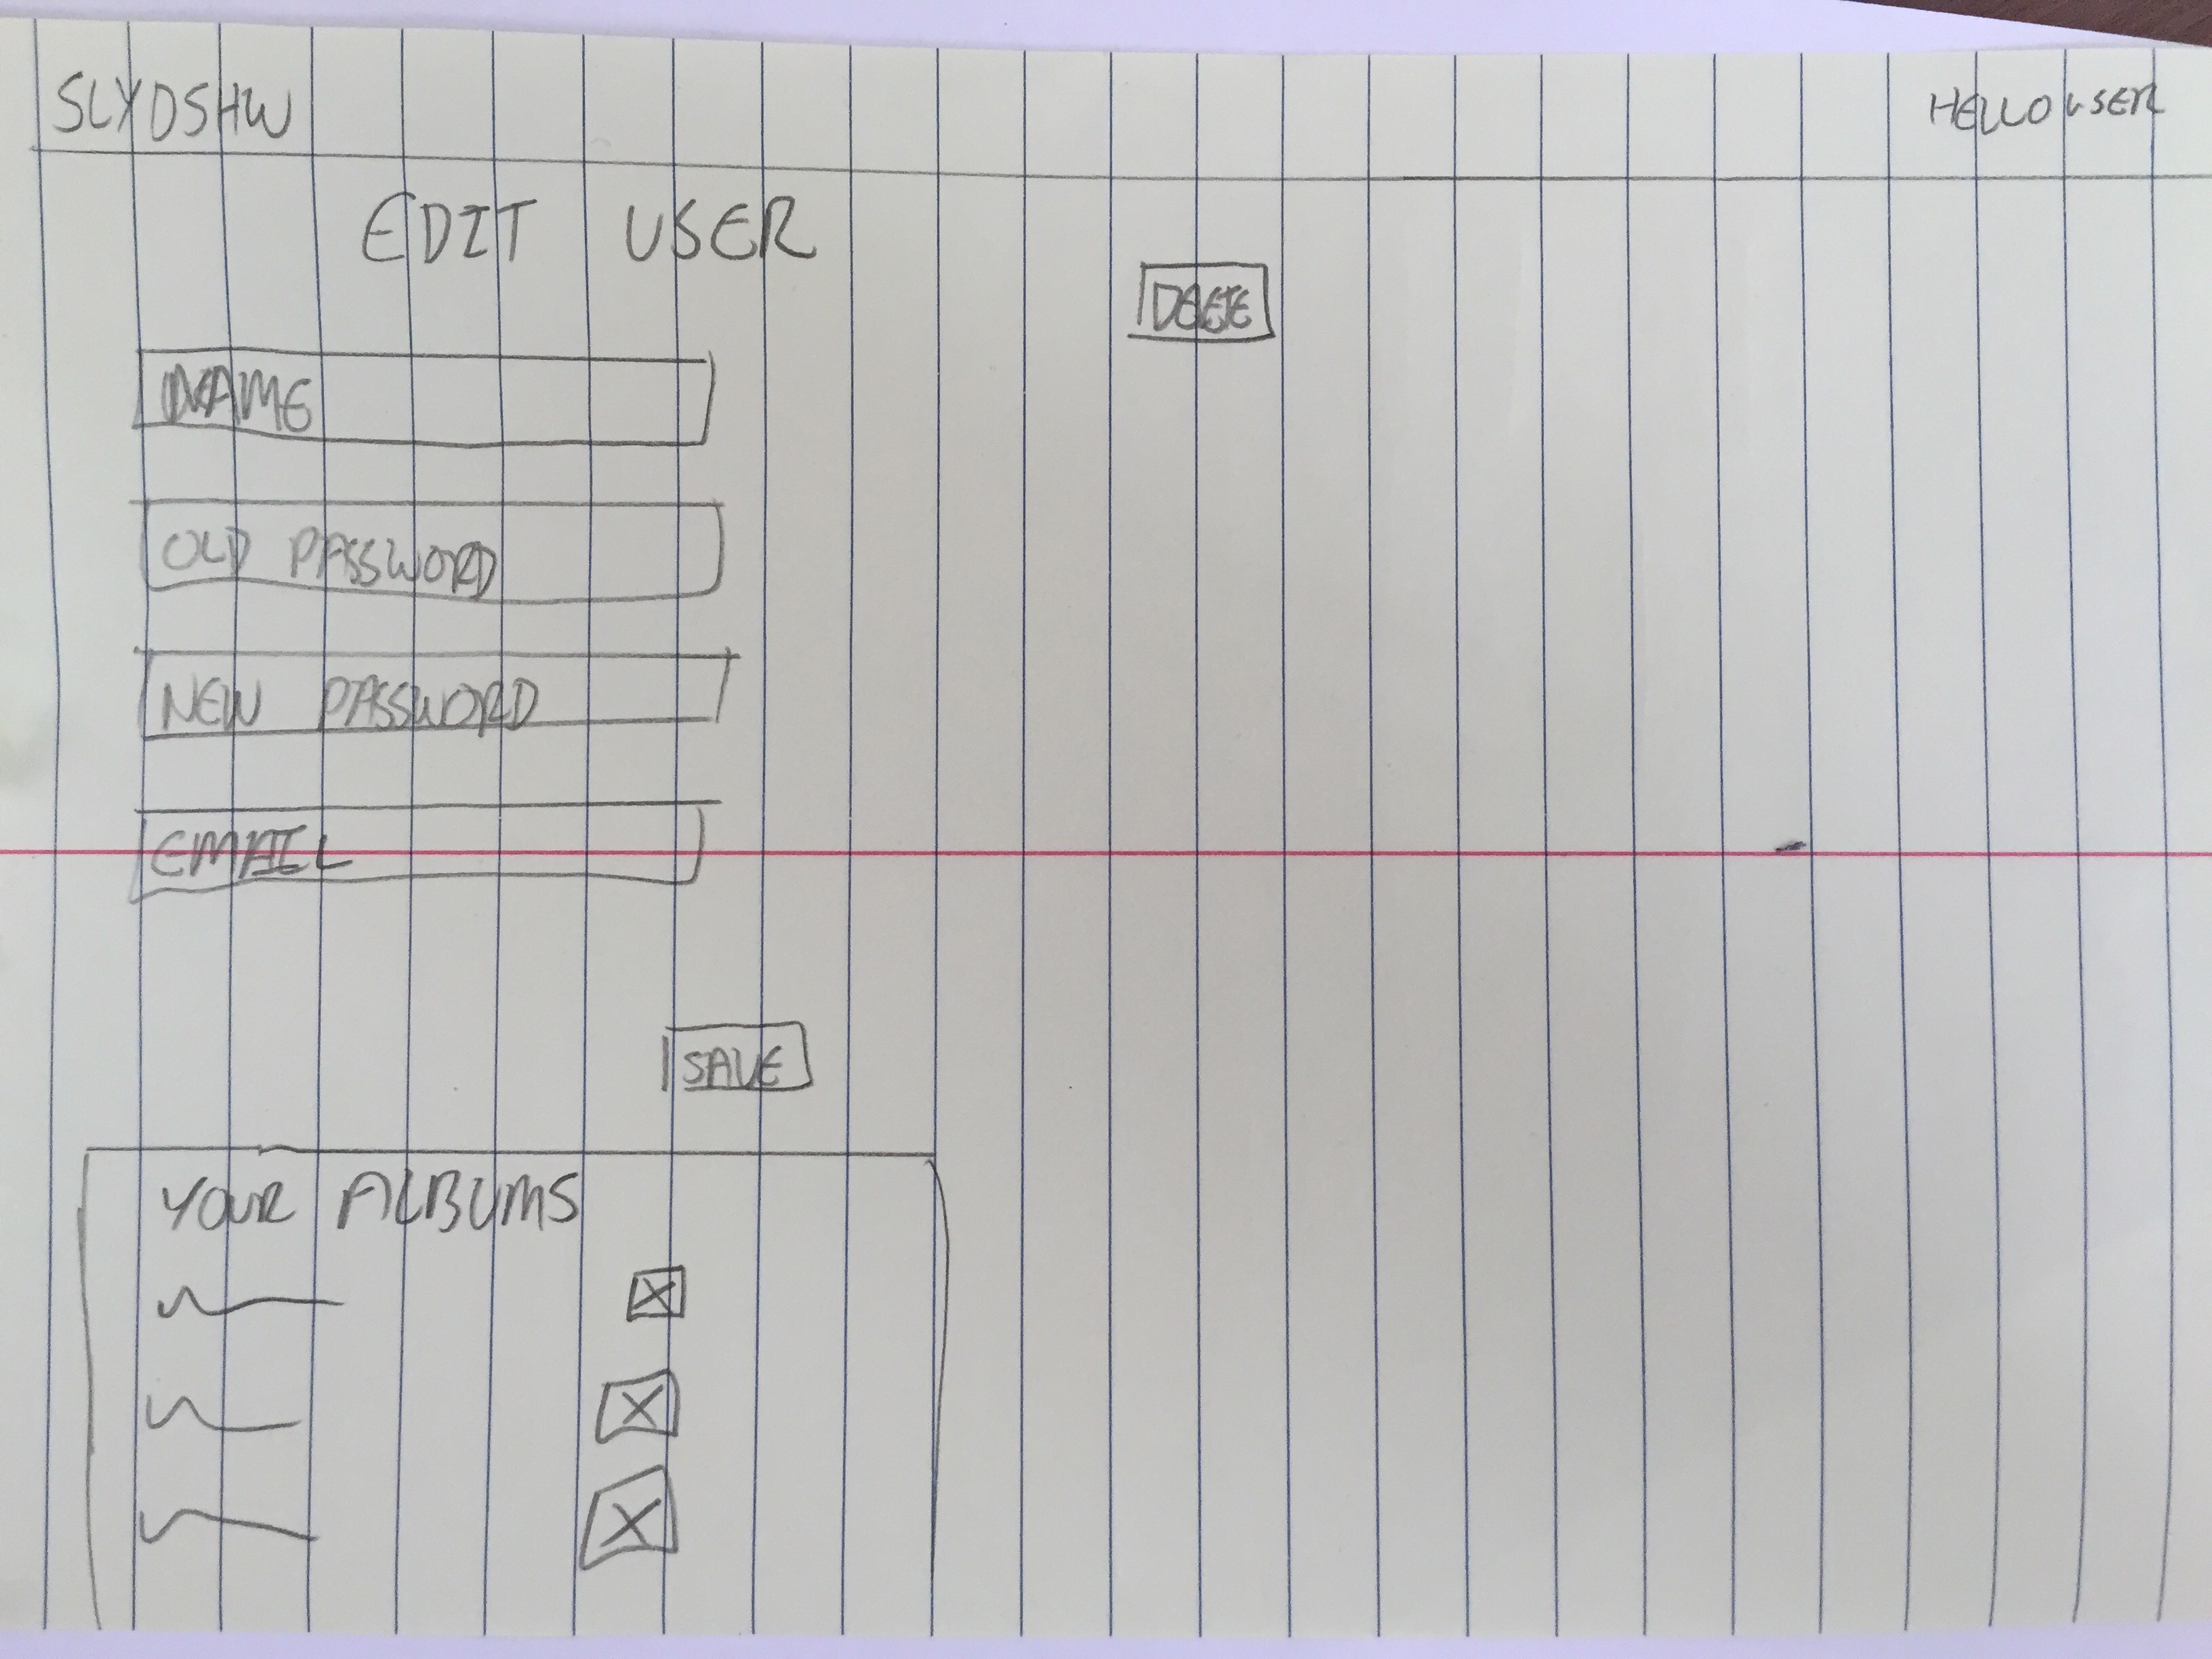 SLYDSHW
HELLO USER
EDIT USER
DELETE
NAME
OLD PASSWORD
NEW PASSWORD
EMAIL
SAVE
YOUR ALBUMS
X
X
X